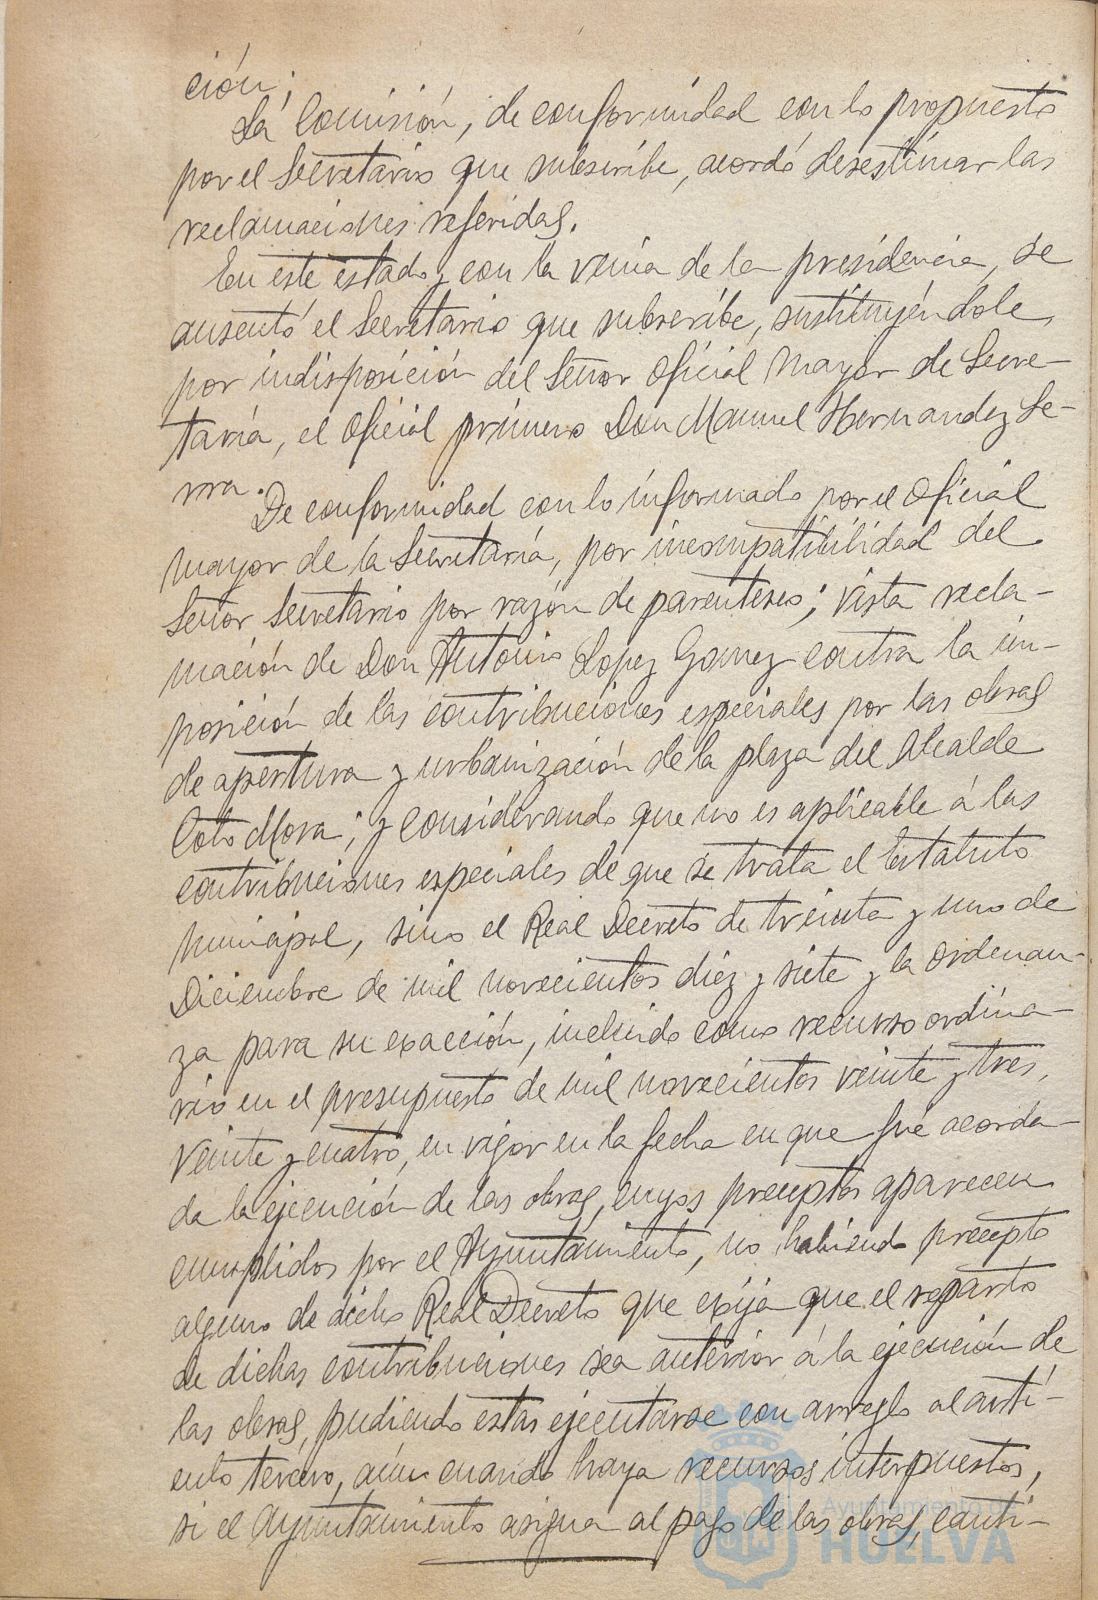 ción;
La Comisión, de conformidad con lo propuesto
por el Secretario que subscribe, acordó desestimar las
reclamaciones referidas.
En este estado y con la venia de la presidencia, se
ausentó el Secretario que subscribe, sustituyéndole,
por indisposición del Señor Oficial Mayor de Secre-
taría, el Oficial primero Don Manuel Hernandez Se-
rra.
De conformidad con lo informado por el Oficial
mayor de la Secretaría, por incompatibilidad del
Señor Secretario por razón de parentesco; vista recla-
mación de Don Antonio Lopez Gomez contra la im-
posición de las contribuciones especiales por las obras
de apertura y urbanización de la plaza del Alcalde
Coto Mora; y considerando que no es aplicable á las
contribuciones especiales de que se trata el Estatuto
municipal, sino el Real Decreto de treinta y uno de
Diciembre de mil novecientos diez y siete y la Ordenan-
za para su exacción, incluido como recurso ordina-
rio en el presupuesto de mil novecientos veinte y tres,
veinte y cuatro, en vigor en la fecha en que fué acorda-
da la ejecución de las obras, cuyos preceptos aparecen
cumplidos por el Ayuntamiento, no habiendo precepto
alguno de dicho Real Decreto que exija que el reparto
de dichas contribuciones sea anterior á la ejecución de
las obras, pudiendo estas ejecutarse con arreglo al artí-
culo tercero, aún cuando haya recursos interpuestos,
si el Ayuntamiento asigna al pago de las obras, canti-
Ayuntamiento de
HUELVA